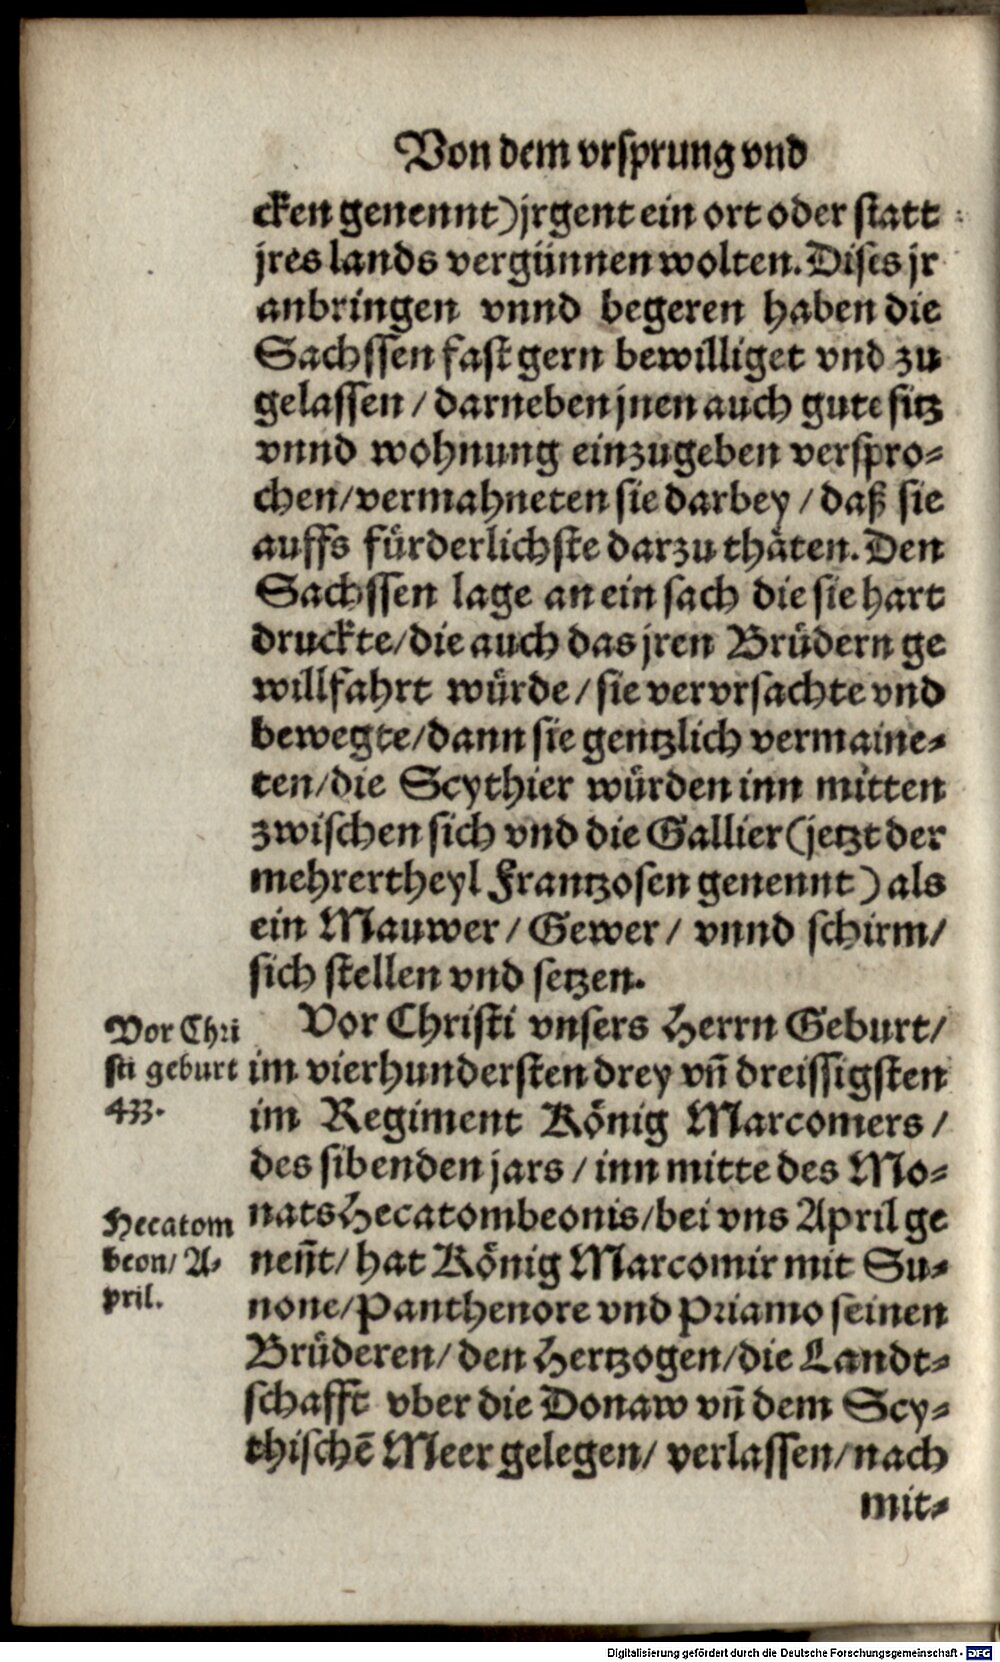 Von dem vrsprung vnd
cken genennt) jrgent ein ort oder statt
jres lands vergünnen wolten. Dises jr
anbringen vnnd begeren haben die
Sachssen fast gern bewilliget vnd zu
gelassen / darneben jnen auch gute sitz
vnnd wohnung einzugeben verspro-
chen / vermahneten sie darbey / daß sie
auffs fürderlichste darzu thäten. Den
Sachssen lage an ein sach die sie hart
druckte / die auch das jren Brüdern ge
willfahrt würde / sie vervrsachte vnd
bewegte / dann sie gentzlich vermaine-
ten / die Scythier würden inn mitten
zwischen sich vnd die Gallier (jetzt der
mehrertheyl Frantzosen genennt) als
ein Mauwer / Gewer / vnnd schirm /
sich stellen vnd setzen.
Vor Chri
sti geburt
433.
Vor Christi vnsers Herrn Geburt /
im vierhundersten drey vñ dreissigsten
im Regiment König Marcomers /
des sibenden jars / inn mitte des Mo-
Hecatom
beon / A-
pril.
nats Hecatombeonis / bei vns April ge
neñt / hat König Marcomir mit Su-
none / Panthenore vnd Priamo seinen
Brüderen / den Hertzogen / die Landt-
schafft vber die Donaw vñ dem Scy-
thischẽ Meer gelegen / verlassen / nach
mit-
Digitalisierung gefördert durch die Deutsche Forschungsgemeinschaft - DFG